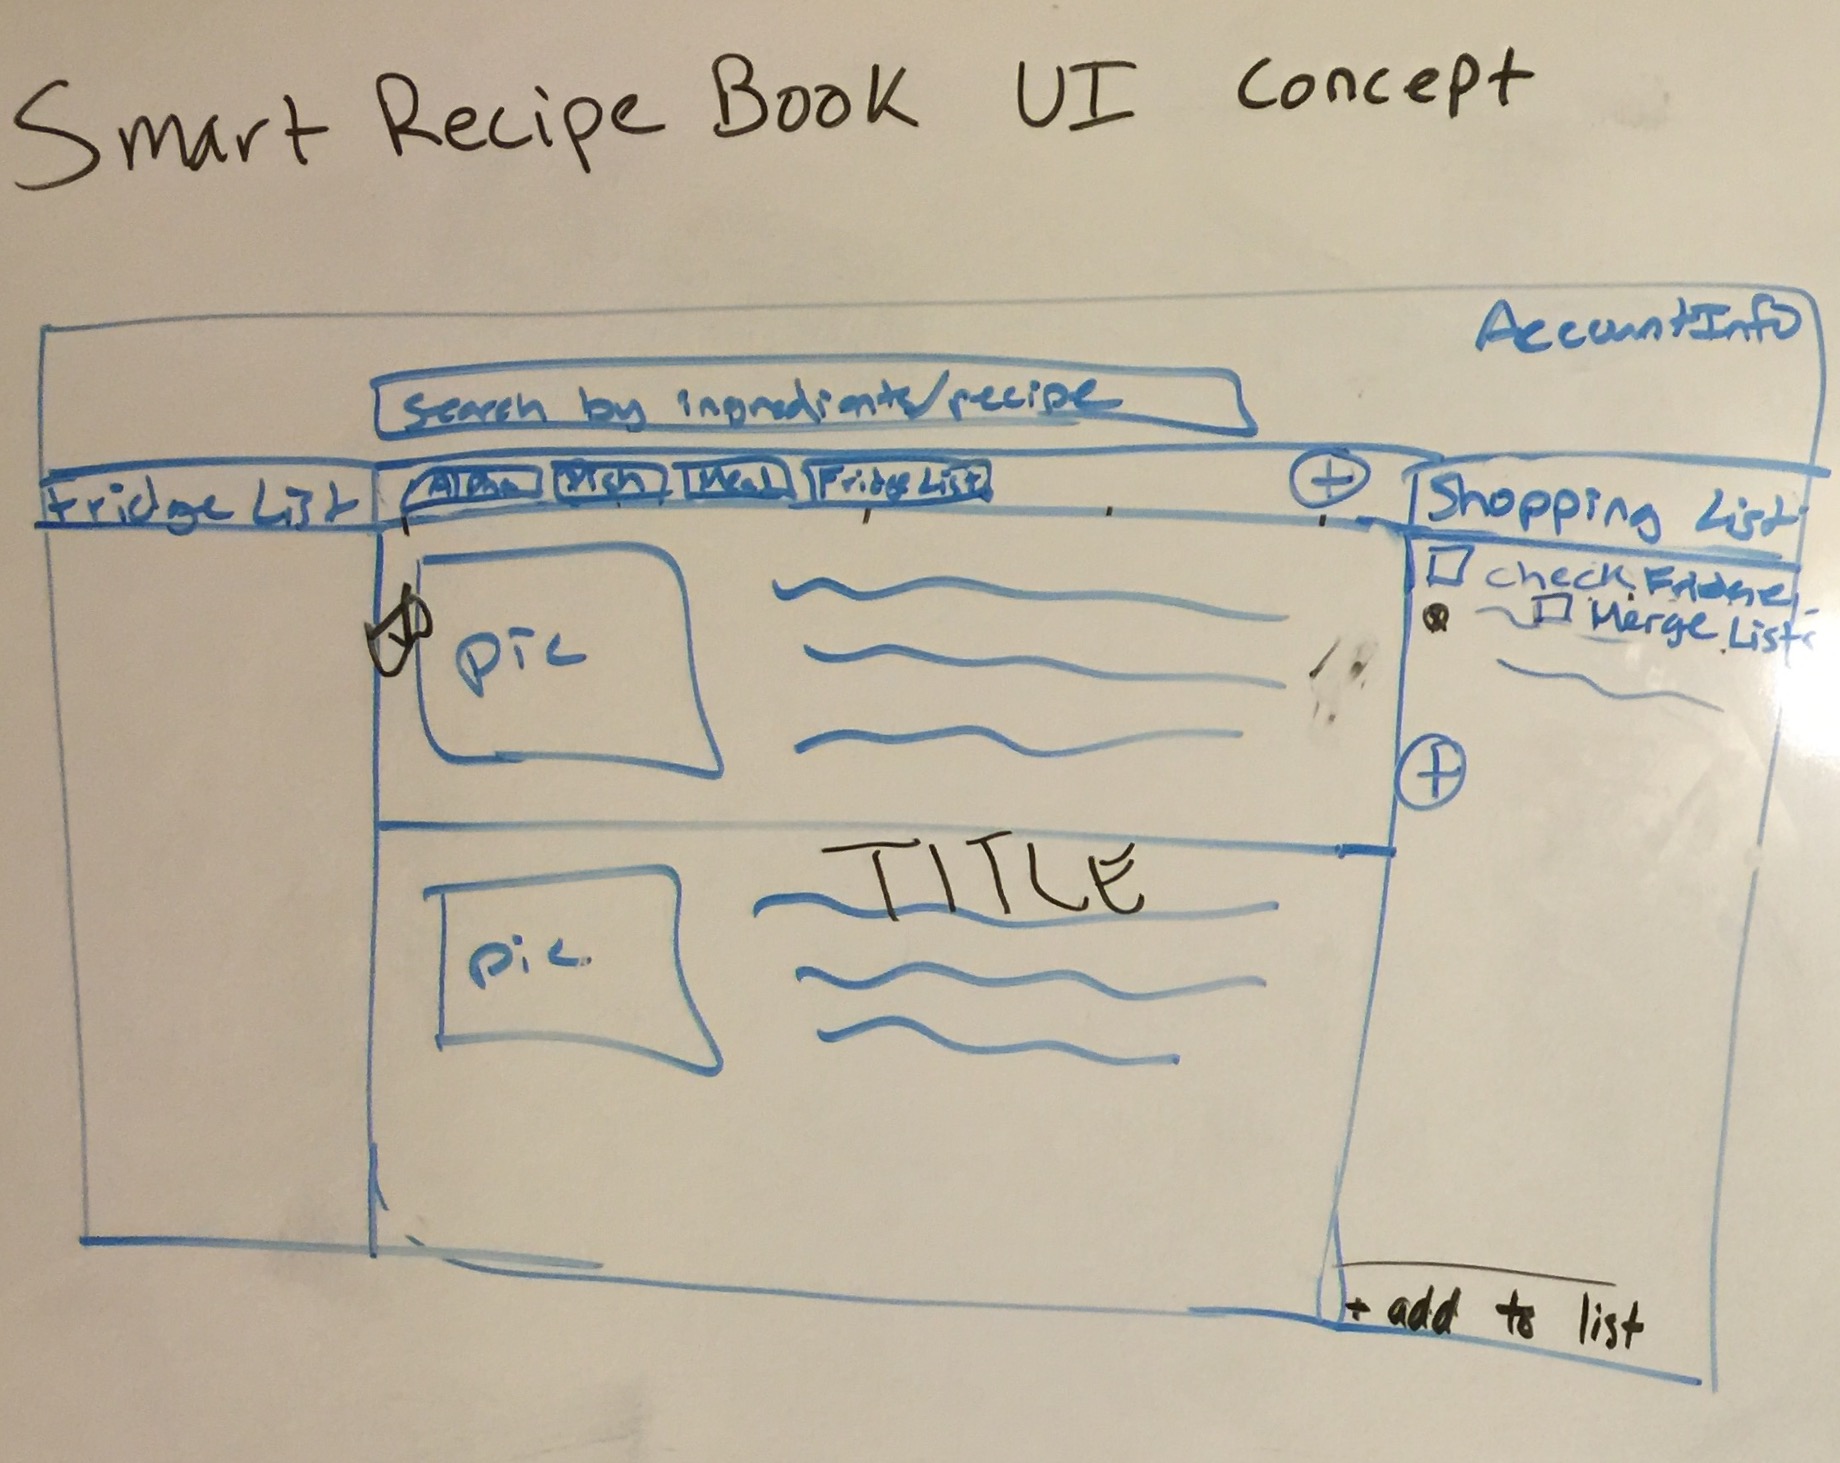 Smart Recipe Book UI concept
AccountInfo
search by ingredients/recipe
Fridge List
Alpha Dish Meal Fridge List
+
Shopping List
check Fridge
Merge Lists
pic
+
TITLE
pic
+ add to list